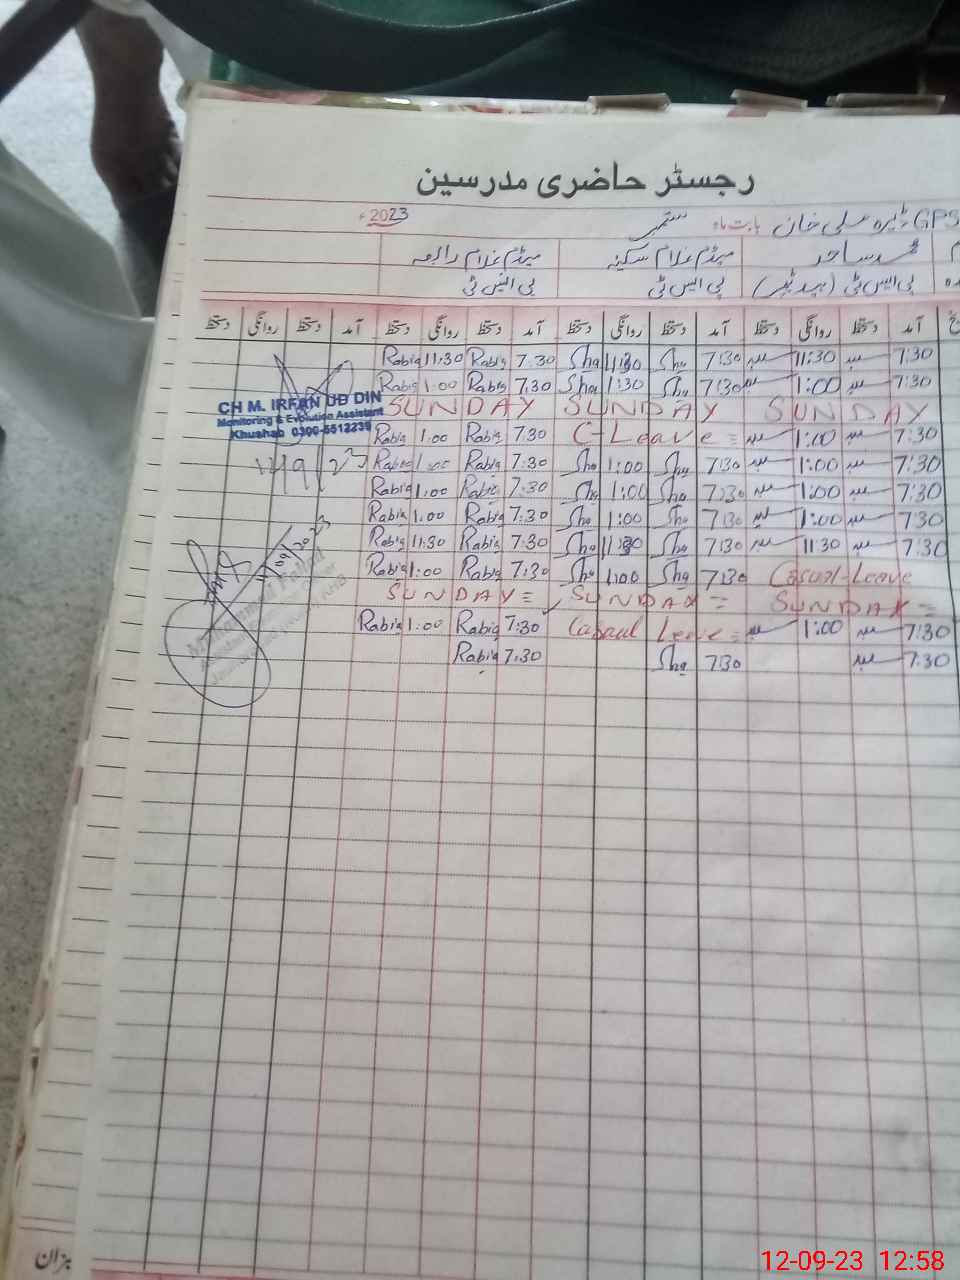 رجسٹر حاضری مدرسین
GPS ڈیرہ علی خان بابت ماہ ستمبر 2023ء
محمد ساجد میڈم غلام سکینہ میڈم غلام رابعہ
پی ایس ٹی (ہیڈ ٹیچر) پی ایس ٹی پی ایس ٹی
آمد دستخط روانگی دستخط آمد دستخط روانگی دستخط آمد دستخط روانگی دستخط آمد دستخط روانگی دستخط
Rabia 11:30 Rabia 7:30 Sha 11:30 Sha 7:30 11:30 7:30
Rabia 1:00 Rabia 7:30 Sha 1:30 Sha 7:30 1:00 7:30
CH M. IRFAN UD DIN
Monitoring & Evolution Assistant
Khushab 0300-5512239
SUNDAY SUNDAY SUNDAY
Rabia 1:00 Rabia 7:30 C-Leave = 1:00 7:30
12/9/23 Rabia 1:00 Rabia 7:30 Sha 1:00 Sha 7:30 1:00 7:30
Rabia 1:00 Rabia 7:30 Sha 1:00 Sha 7:30 1:00 7:30
Rabia 1:00 Rabia 7:30 Sha 1:00 Sha 7:30 1:00 7:30
Rabia 11:30 Rabia 7:30 Sha 11:30 Sha 7:30 11:30 7:30
Rabia 1:00 Rabia 7:30 Sha 1:00 Sha 7:30 Casual-Leave
11/09/2023
SUNDAY = SUNDAY = SUNDAY =
Rabia 1:00 Rabia 7:30 Casaul Leve = 1:00 7:30
Rabia 7:30 Sha 7:30 7:30
میزان
12-09-23 12:58